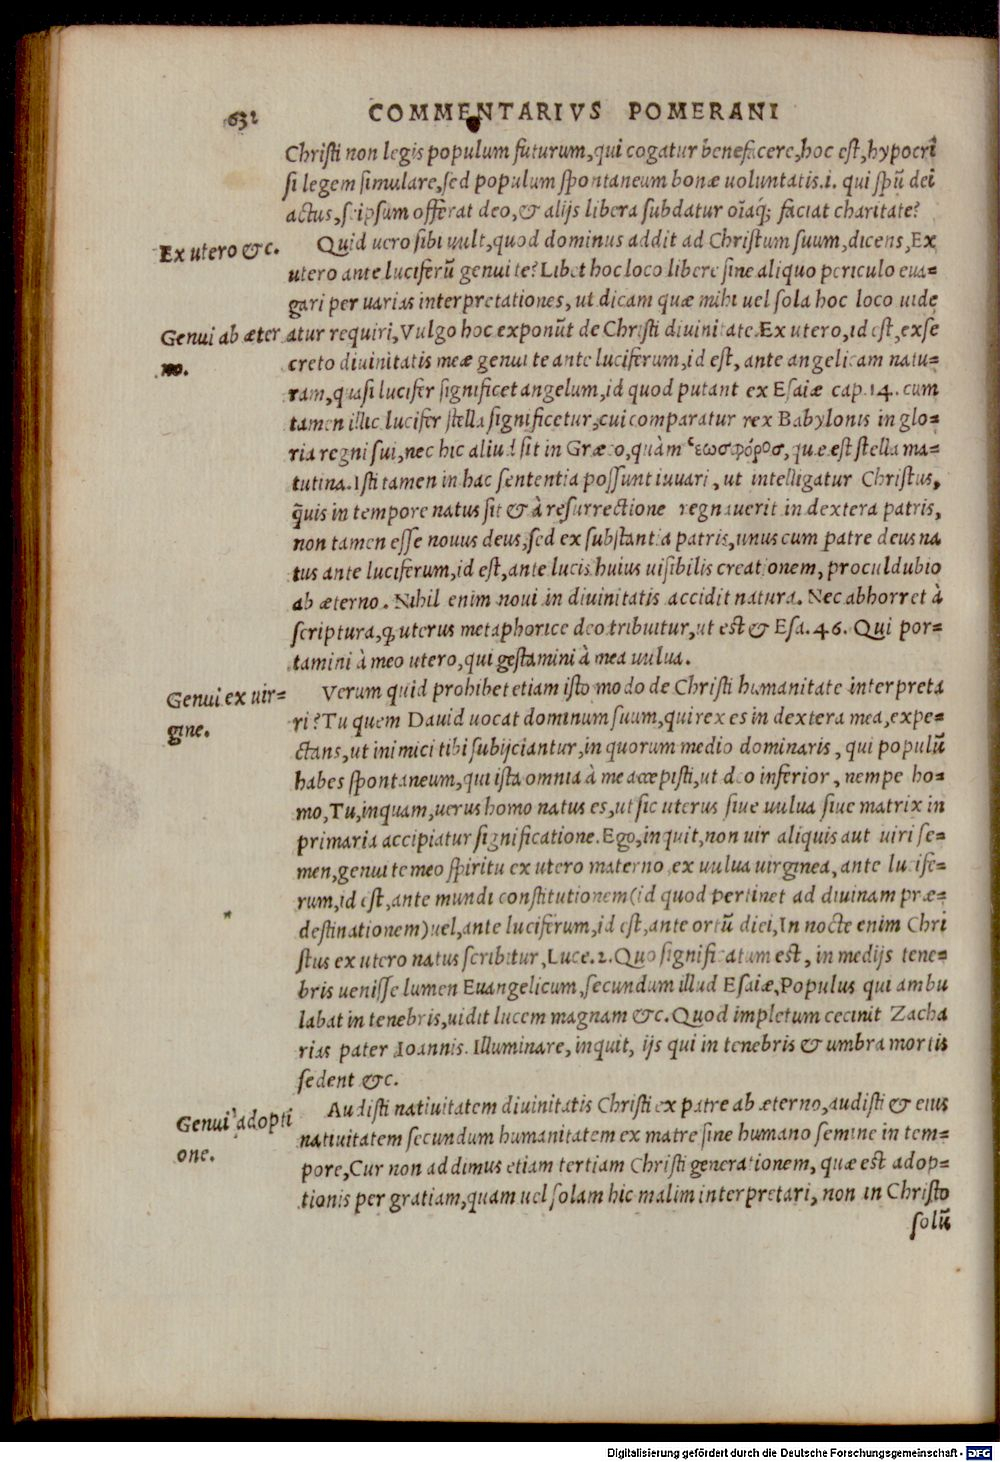 632 COMMENTARIVS POMERANI
Christi non legis populum futurum, qui cogatur benefacere, hoc est, hypocri
si legem simulare, sed populum spontaneum bonæ uoluntatis.i. qui spũ dei
actus, seipsum offerat deo, & alijs libera subdatur oĩaq; faciat charitate?
Ex utero &c.
Quid uero sibi uult, quod dominus addit ad Christum suum, dicens, Ex
utero ante luciferũ genui te? Libet hoc loco libere sine aliquo periculo eua=
gari per uarias interpretationes, ut dicam quæ mihi uel sola hoc loco uide
Genui ab æter
no.
atur requiri, Vulgo hoc exponũt de Christi diuinitate. Ex utero, id est, ex se
creto diuinitatis meæ genui te ante luciferum, id est, ante angelicam natu=
ram, quasi lucifer significet angelum, id quod putant ex Esaiæ cap. 14. cum
tamen illic lucifer stella significetur, cui comparatur rex Babylonis in glo=
ria regni sui, nec hic aliud sit in Græco, quàm ἑωσφόροσ, quæ est stella ma=
tutina. Isti tamen in hac sententia possunt iuuari, ut intelligatur Christus,
q̃uis in tempore natus sit & à resurrectione regnauerit in dextera patris,
non tamen esse nouus deus, sed ex substantia patris, unus cum patre deus na
tus ante luciferum, id est, ante lucis huius uisibilis creationem, proculdubio
ab æterno. Nihil enim noui in diuinitatis accidit natura. Nec abhorret à
scriptura, ꝙ uterus metaphorice deo tribuitur, ut est & Esa. 46. Qui por=
tamini à meo utero, qui gestamini à mea uulua.
Genui ex uir=
gine.
Verum quid prohibet etiam isto modo de Christi humanitate interpreta
ri? Tu quem Dauid uocat dominum suum, qui rex es in dextera mea, expe=
ctans, ut inimici tibi subijciantur, in quorum medio dominaris, qui populũ
habes spontaneum, qui ista omnia à me accepisti, ut deo inferior, nempe ho=
mo, Tu, inquam, uerus homo natus es, ut sic uterus siue uulua siue matrix in
primaria accipiatur significatione. Ego, inquit, non uir aliquis aut uiri se=
men, genui te meo spiritu ex utero materno ex uulua uirginea, ante lucife=
rum, id est, ante mundi constitutionem (id quod pertinet ad diuinam præ=
destinationem) uel, ante luciferum, id est, ante ortũ diei, In nocte enim Chri
stus ex utero natus scribitur, Luce. 2. Quo significatum est, in medijs tene=
bris uenisse lumen Euangelicum, secundum illud Esaiæ, Populus qui ambu
labat in tenebris, uidit lucem magnam &c. Quod impletum cecinit Zacha
rias pater Ioannis. Illuminare, inquit, ijs qui in tenebris & umbra mortis
sedent &c.
Genui adopti
one.
Audisti natiuitatem diuinitatis Christi ex patre ab æterno, audisti & eius
natiuitatem secundum humanitatem ex matre sine humano semine in tem=
pore, Cur non addimus etiam tertiam Christi generationem, quæ est adop=
tionis per gratiam, quam uel solam hic malim interpretari, non in Christo
solũ
Digitalisierung gefördert durch die Deutsche Forschungsgemeinschaft - DFG